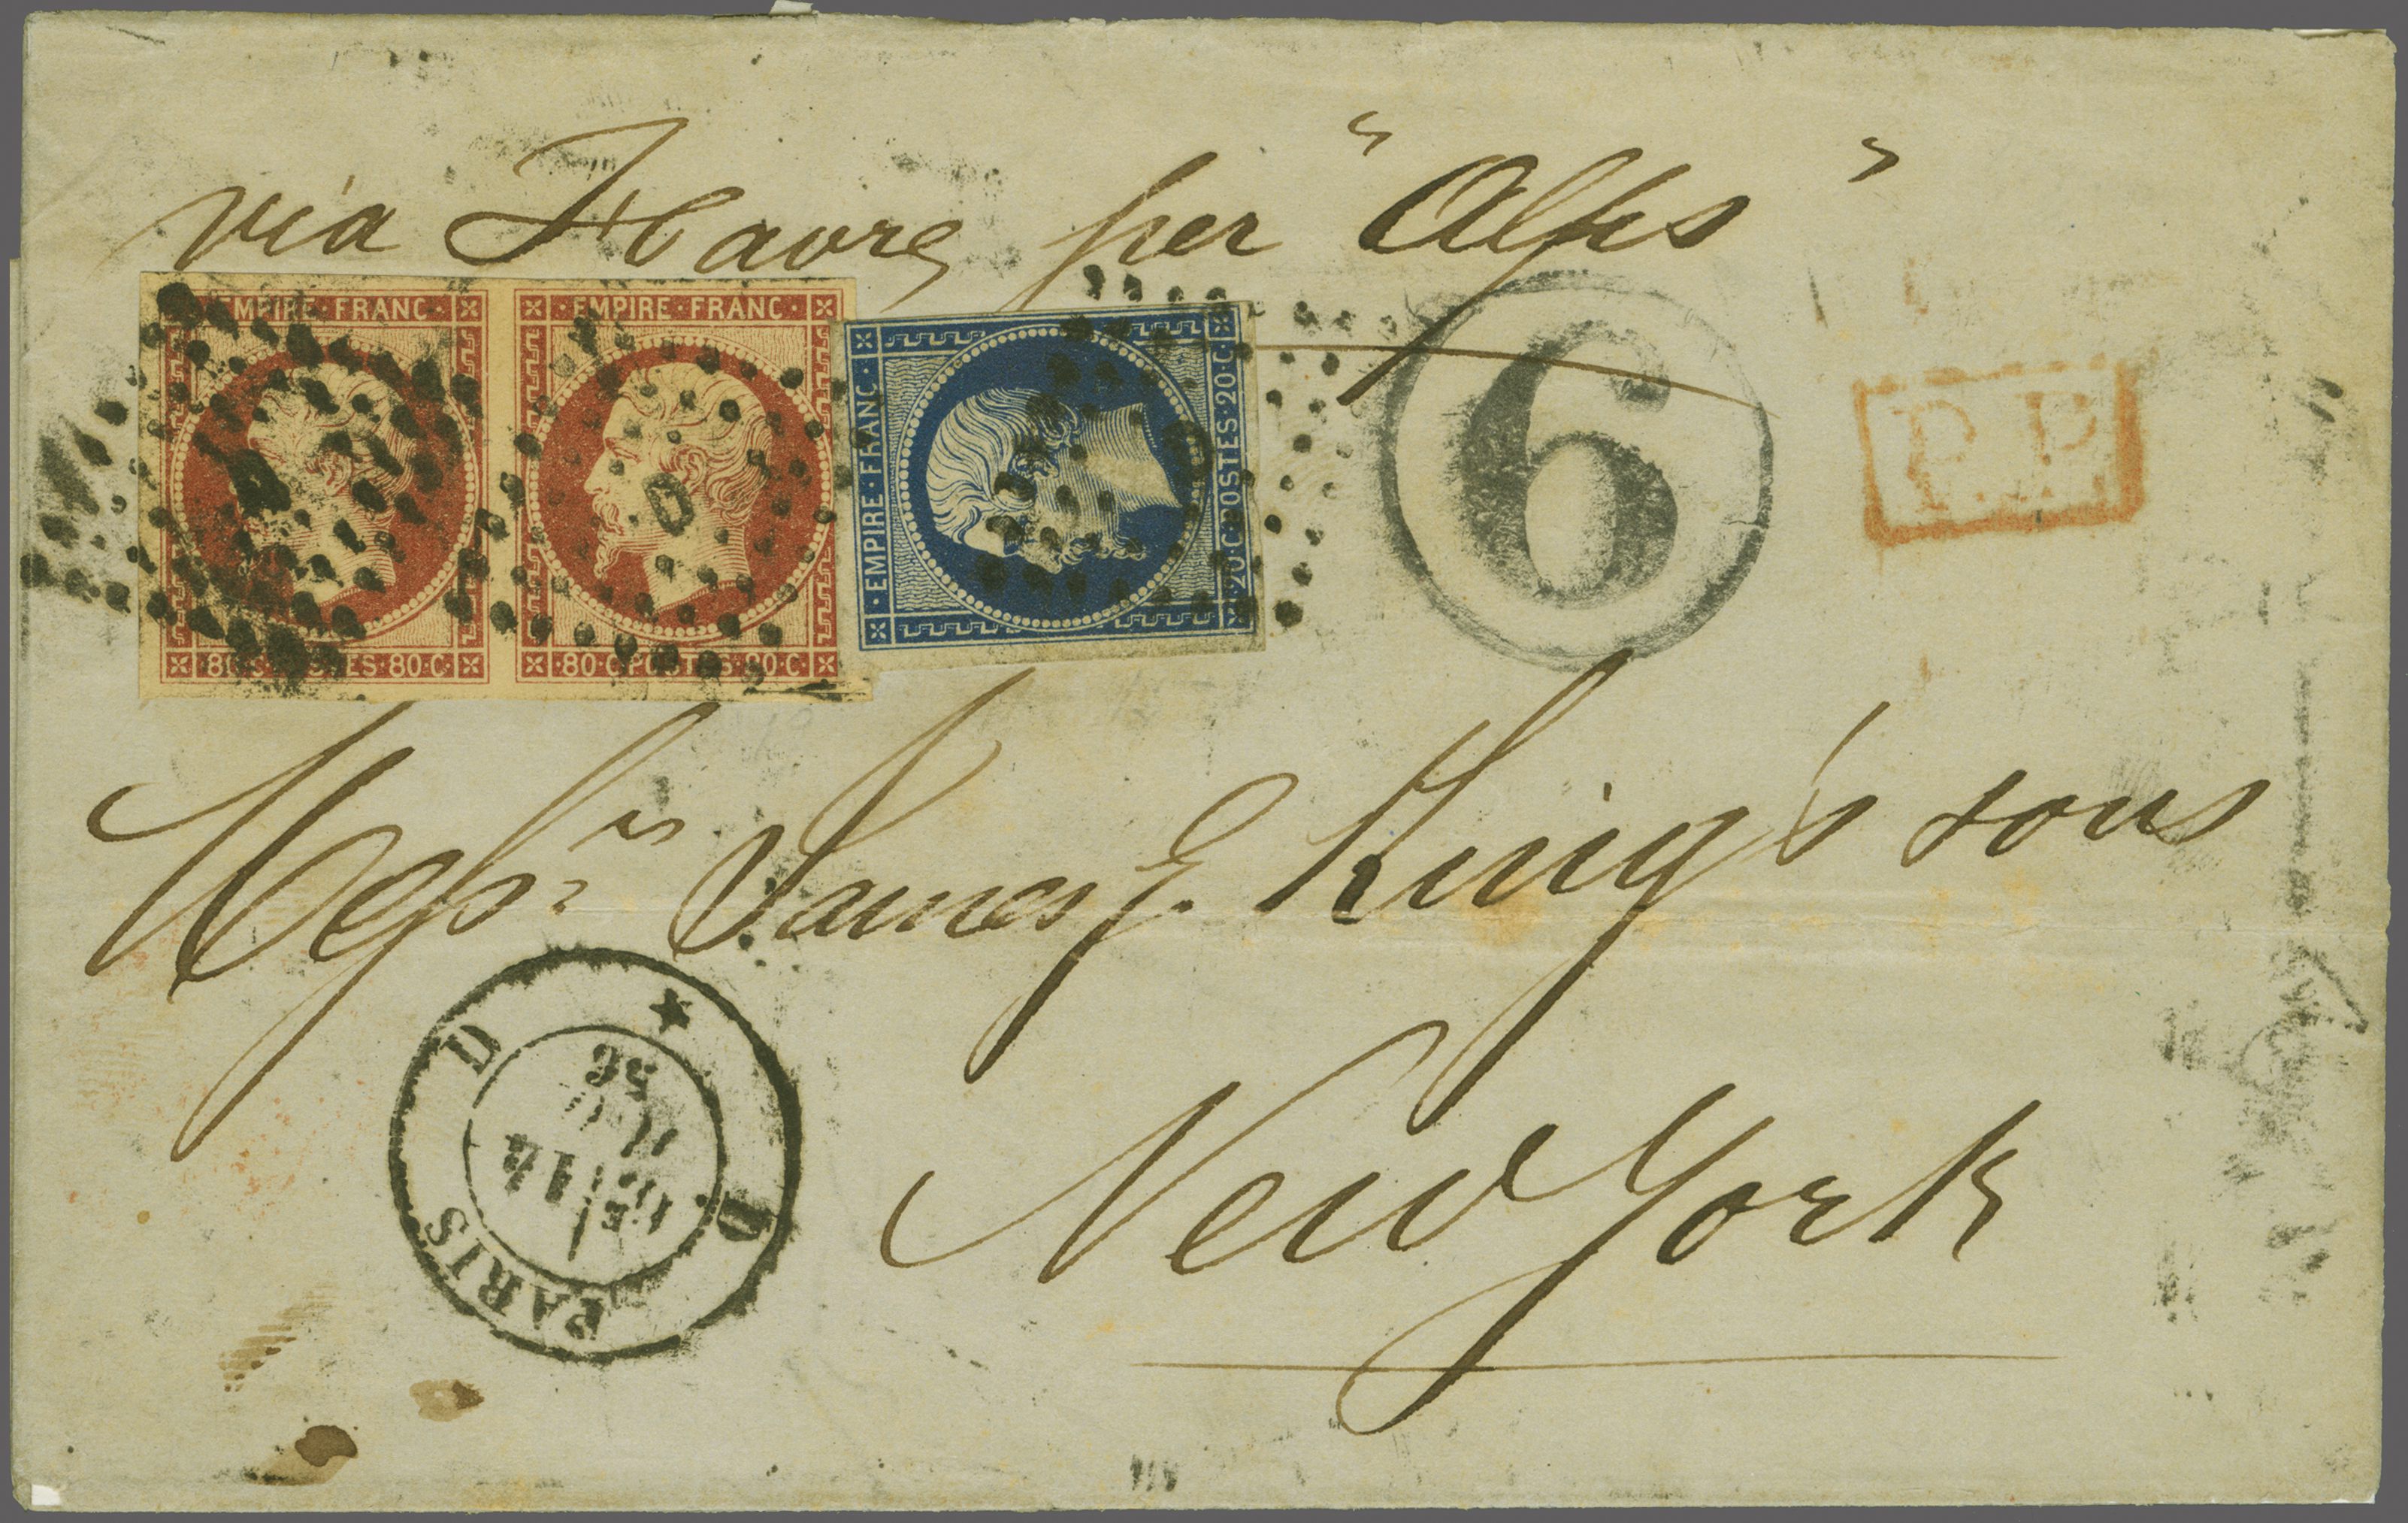 via Havre per "Alps"
EMPIRE · FRANC ·
· EMPIRE · FRANC ·
80 · C · POSTES · 80 · C ·
80 · C · POSTES · 80 · C ·
· EMPIRE · FRANC ·
· 20 · C · POSTES · 20 · C ·
D
6
P.P.
Messrs James G. King's sons
New York
PARIS
D
D
14
56